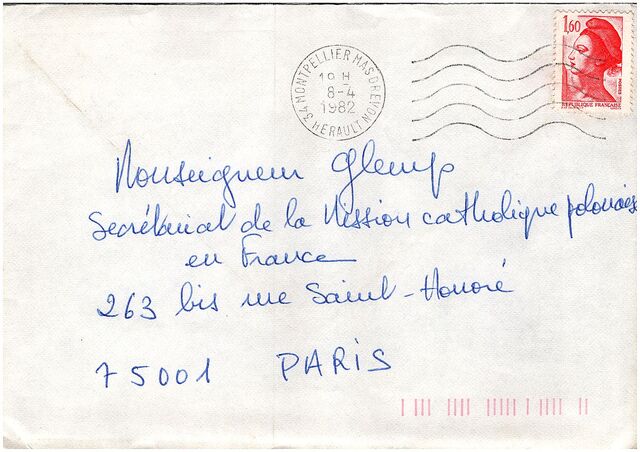 1,60
POSTES
REPUBLIQUE FRANÇAISE
34 MONTPELLIER MAS DREVON
19 H
8-4
1982
HERAULT
Monseigneur Glemp
Secrétariat de la Mission catholique polonaise
en France
263 bis rue Saint-Honoré
75001 PARIS